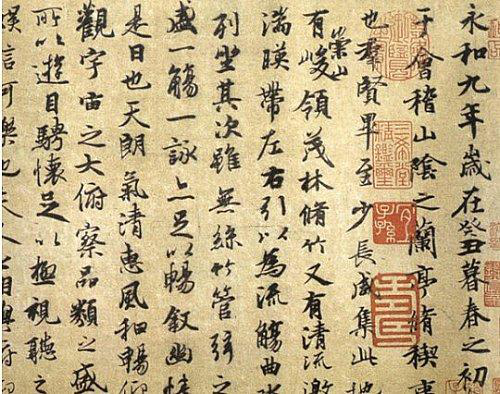 永和九年歲在癸丑暮春之初
于會稽山陰之蘭亭脩稧事
也羣賢畢至少長咸集此地
崇山
有峻領茂林脩竹又有清流激
湍暎帶左右引以為流觴曲水
列坐其次雖無絲竹管弦之
盛一觴一詠亦足以暢叙幽情
是日也天朗氣清惠風和暢仰
觀宇宙之大俯察品類之盛
所以遊目騁懷足以極視聽之
娛信可樂也夫人之相與俯仰